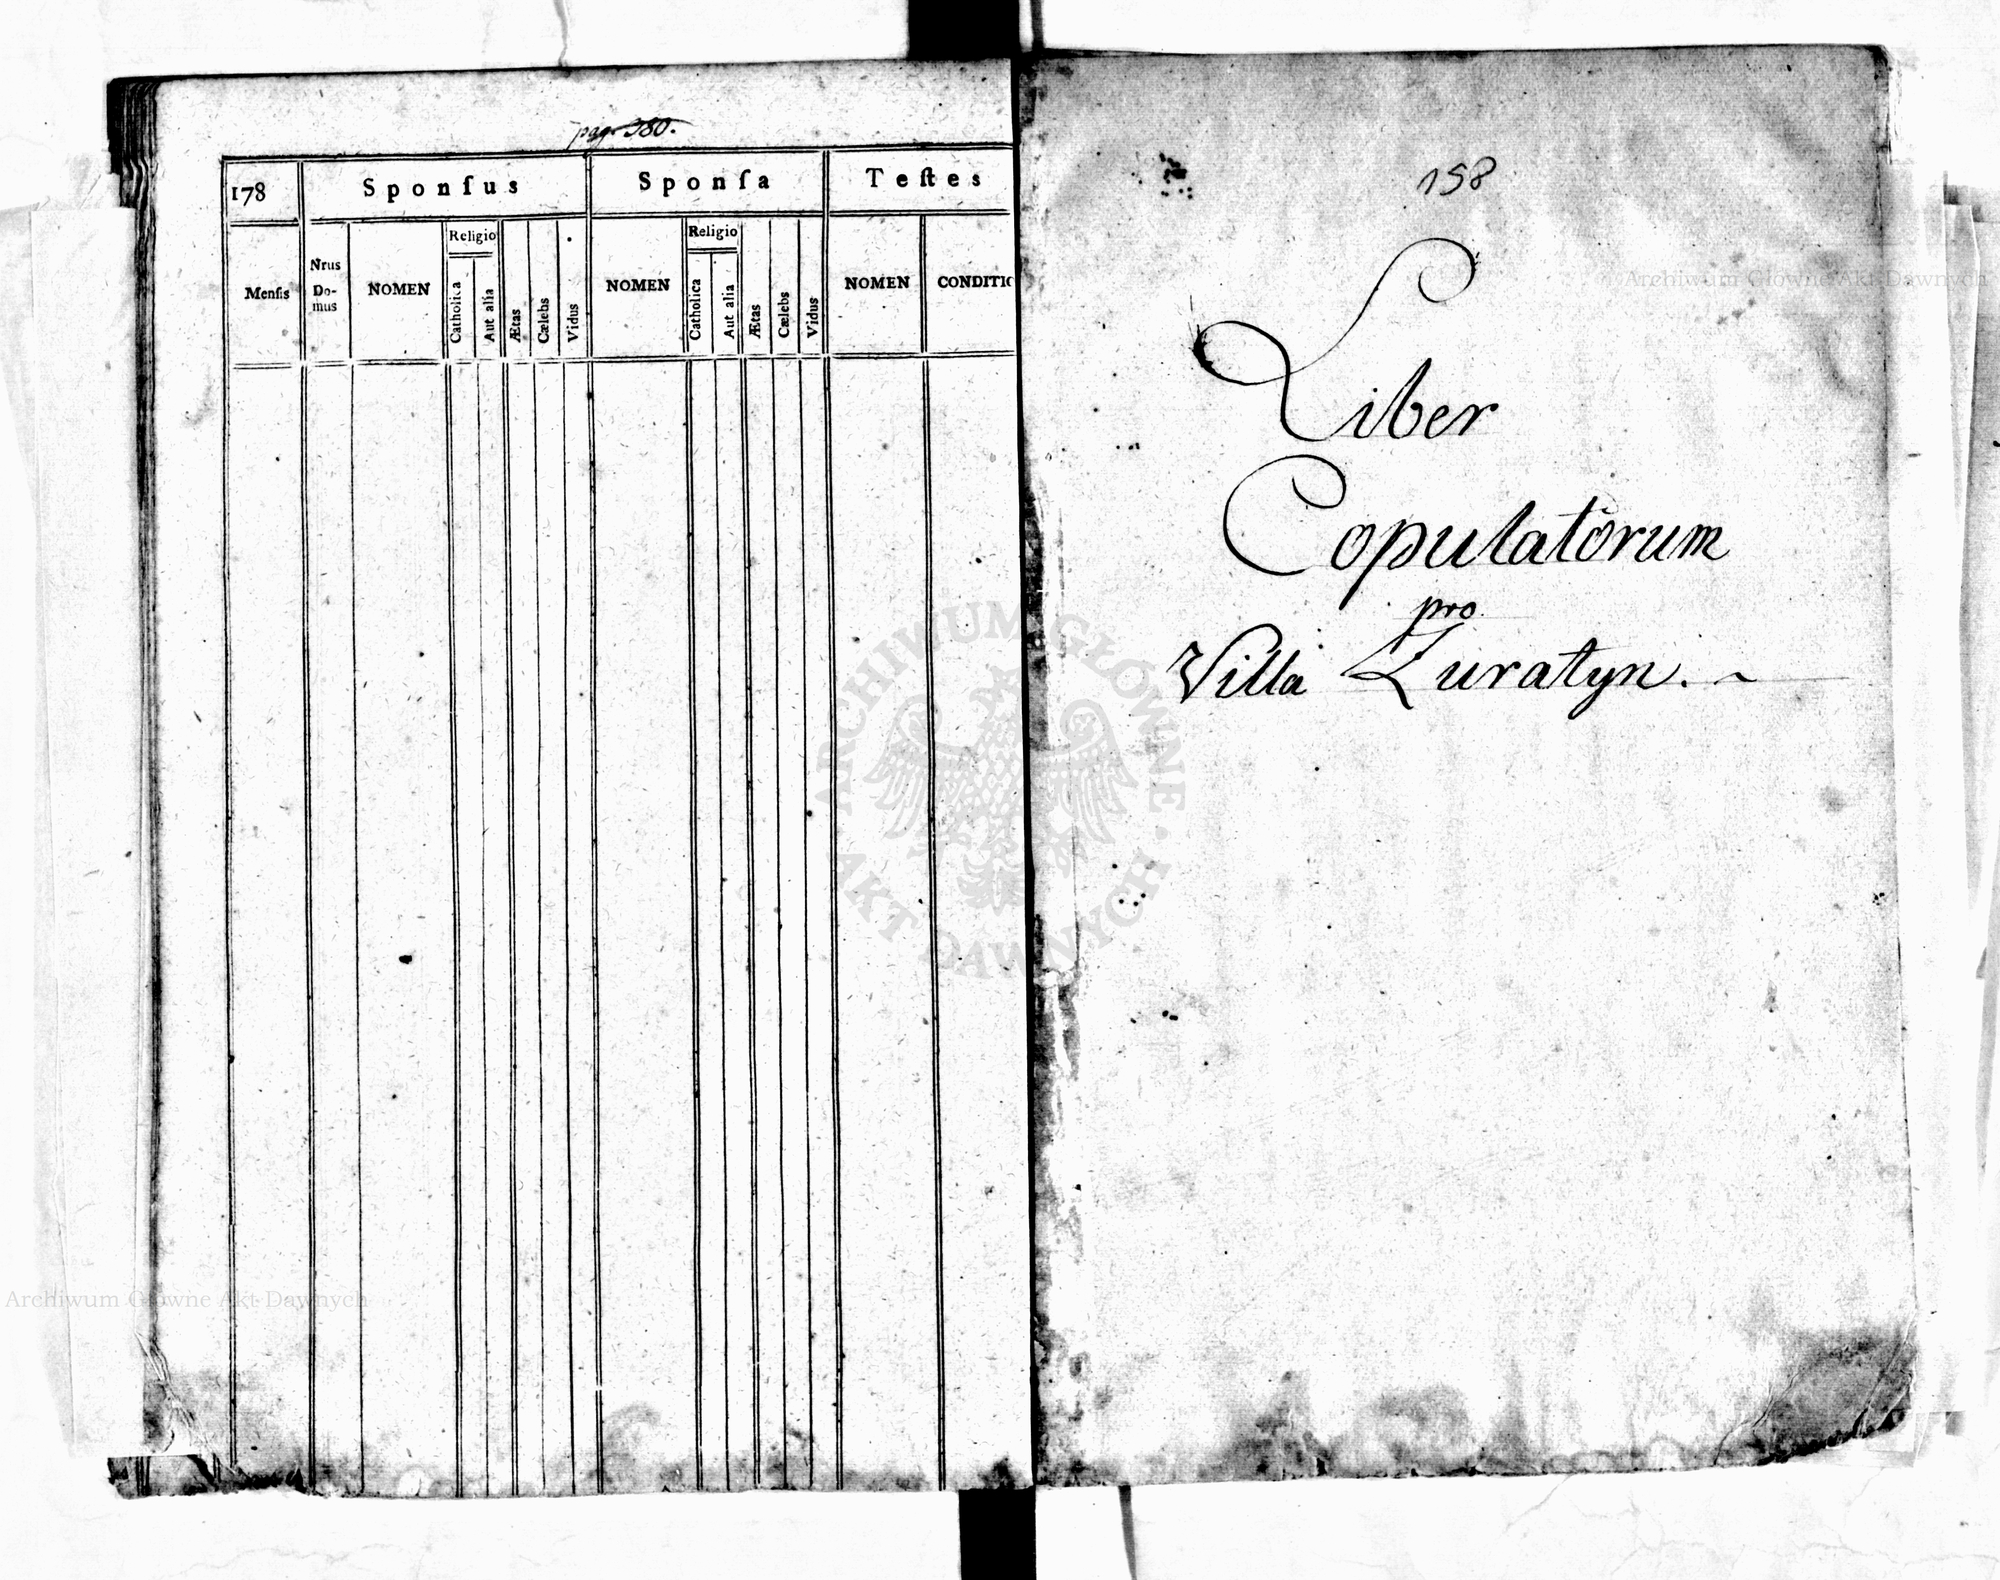 pag. 380.
178 Sponſus Sponſa Teſtes
Menſis Nrus Do-mus NOMEN Religio Catholica Aut alia Ætas Cælebs Vidus NOMEN Religio Catholica Aut alia Ætas Cælebs Vidus NOMEN CONDITIO
158
Liber
Copulatorum
pro
Villa Zuratyn.
ARCHIWUM GŁÓWNE AKT DAWNYCH
Archiwum Główne Akt Dawnych
Archiwum Główne Akt Dawnych